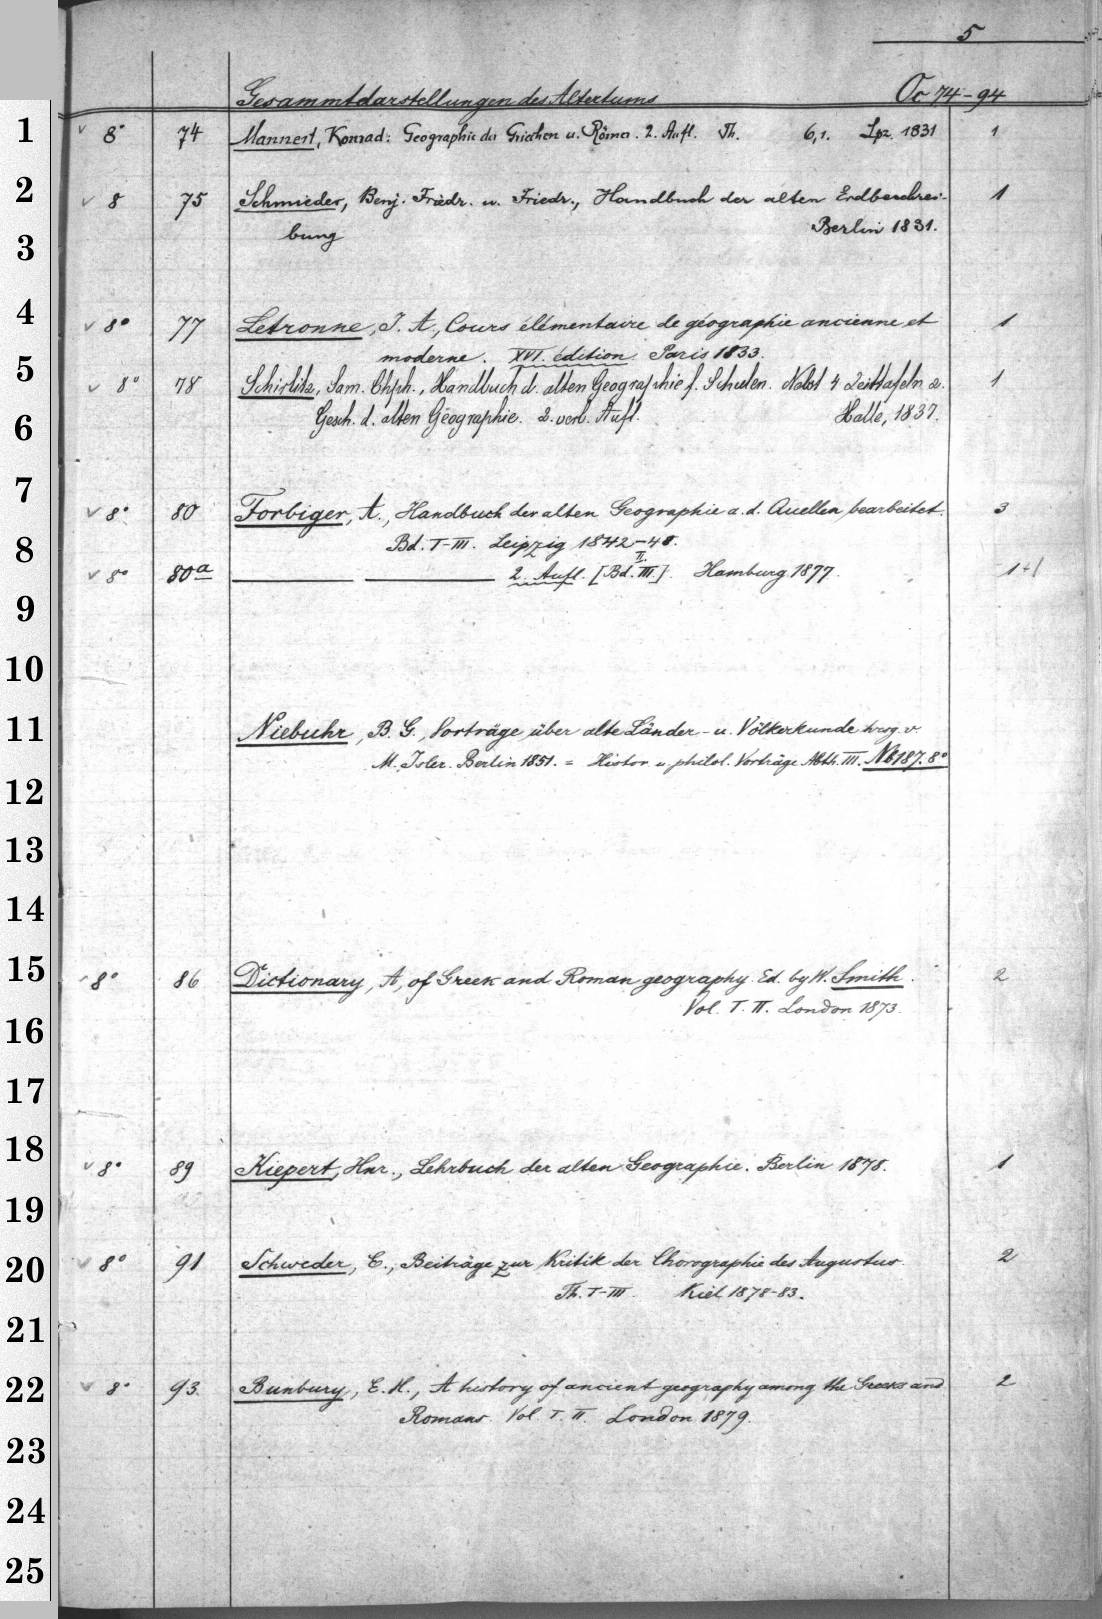 5
Gesammtdarstellungen des Altertums Oc 74-94
1 8° 74 Mannert, Konrad: Geographie der Griechen u. Römer. 2. Aufl. Th. 6,1. Lpz. 1831 1
2 8 75 Schmieder, Benj. Friedr. u. Friedr., Handbuch der alten Erdbeschrei- 1
3 bung Berlin 1831.
4 8° 77 Letronne, J. A., Cours élémentaire de géographie ancienne et 1
moderne. XVI. édition. Paris 1833.
5 8° 78 Schirlitz, Sam. Chph., Handbuch d. alten Geographie f. Schulen. Nebst 4 Zeittafeln z. 1
6 Gesch. d. alten Geographie. 2. verb. Aufl. Halle, 1837.
7 8° 80 Forbiger, A., Handbuch der alten Geographie a. d. Quellen bearbeitet. 3
8 Bd. I-III. Leipzig 1842-48.
II.
8° 80a 2. Aufl. [Bd. III.] Hamburg 1877. 1+1
9
10
11 Niebuhr, B. G., Vorträge über alte Länder- u. Völkerkunde hrsg. v.
M. Isler. Berlin 1851. = Histor. u. philol. Vorträge Abth. III. Nb 187. 8°
12
13
14
15 8° 86 Dictionary, A, of Greek and Roman geography. Ed. by W. Smith. 2
16 Vol. I. II. London 1873.
17
18 8° 89 Kiepert, Hnr., Lehrbuch der alten Geographie. Berlin 1878. 1
19
20 8° 91 Schweder, E., Beiträge zur Kritik der Chorographie des Augustus. 2
Th. I-III. Kiel 1878-83.
21
22 8° 93 Bunbury, E. H., A history of ancient geography among the Greeks and 2
Romans. Vol. I. II. London 1879.
23
24
25